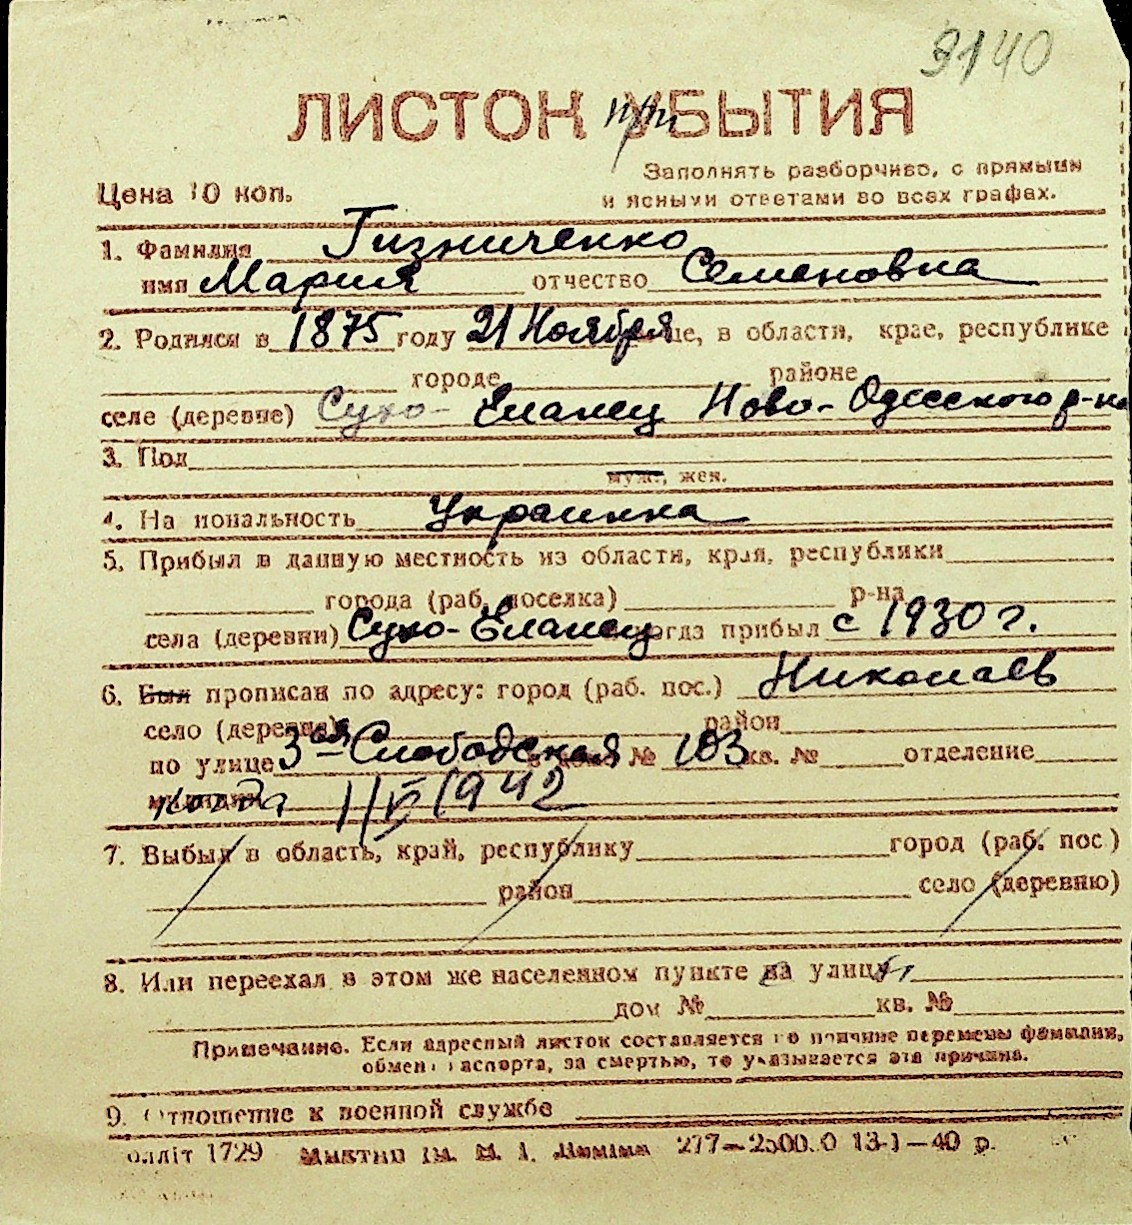 3140
ЛИСТОК при УБЫТИЯ
Заполнять разборчиво, с прямыми
Цена 10 коп. и ясными ответами во всех графах.
1. Фамилия Гизниченко
имя Мария отчество Семеновна
2. Родился в 1875 году 21 Ноября це, в области, крае, республике
городе районе
селе (деревне) Сухо-Еланец Ново-Одесского р-на
3. Пол
муж., жен.
4. Национальность Украинка
5. Прибыл в данную местность из области, края, республики
города (раб. поселка) р-на
села (деревни) Сухо-Еланец когда прибыл с 1930 г.
6. Был прописан по адресу: город (раб. пос.) Николаев
село (деревня) район
по улице 3ая Слободская дом № 103 кв. № отделение
когда 1/V 1942
7. Выбыл в область, край, республику город (раб. пос.)
район село (деревню)
8. Или переехал в этом же населенном пункте на улицу
дом № кв. №
Примечание. Если адресный листок составляется по причине перемены фамилии,
обмена паспорта, за смертью, то указывается эта причина.
9. Отношение к военной службе
олліт 1729 277—25000 13-1—40 р.